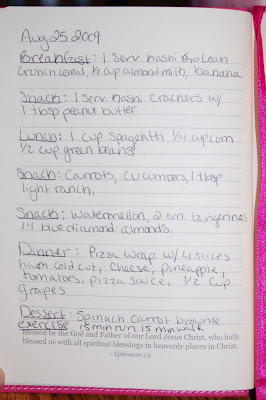 Aug 25 2009
Breakfast: 1 serv. Kashi Go Lean
Crunch cereal, ½ cup almond milk, banana
Snack: 1 serv. Kashi Crackers w/
1 tbsp peanut butter
Lunch: 1 cup spaghetti ¼ cup corn
½ cup green beans
Snack: Carrots, cucumbers, 1 tbsp
light ranch,
Snack: Watermellon, 2 sm. tangerines
14 blue diamond almonds.
Dinner: Pizza Wrap w/ 4 slices
ham cold cut, cheese, pineapple,
tomatoes, pizza sauce, ½ cup
grapes
Dessert: Spinach carrot brownie
exercise 15 min run 15 min walk
Blessed be the God and Father of our Lord Jesus Christ, who hath
blessed us with all spiritual blessings in heavenly places in Christ.
~ Ephesians 1:3